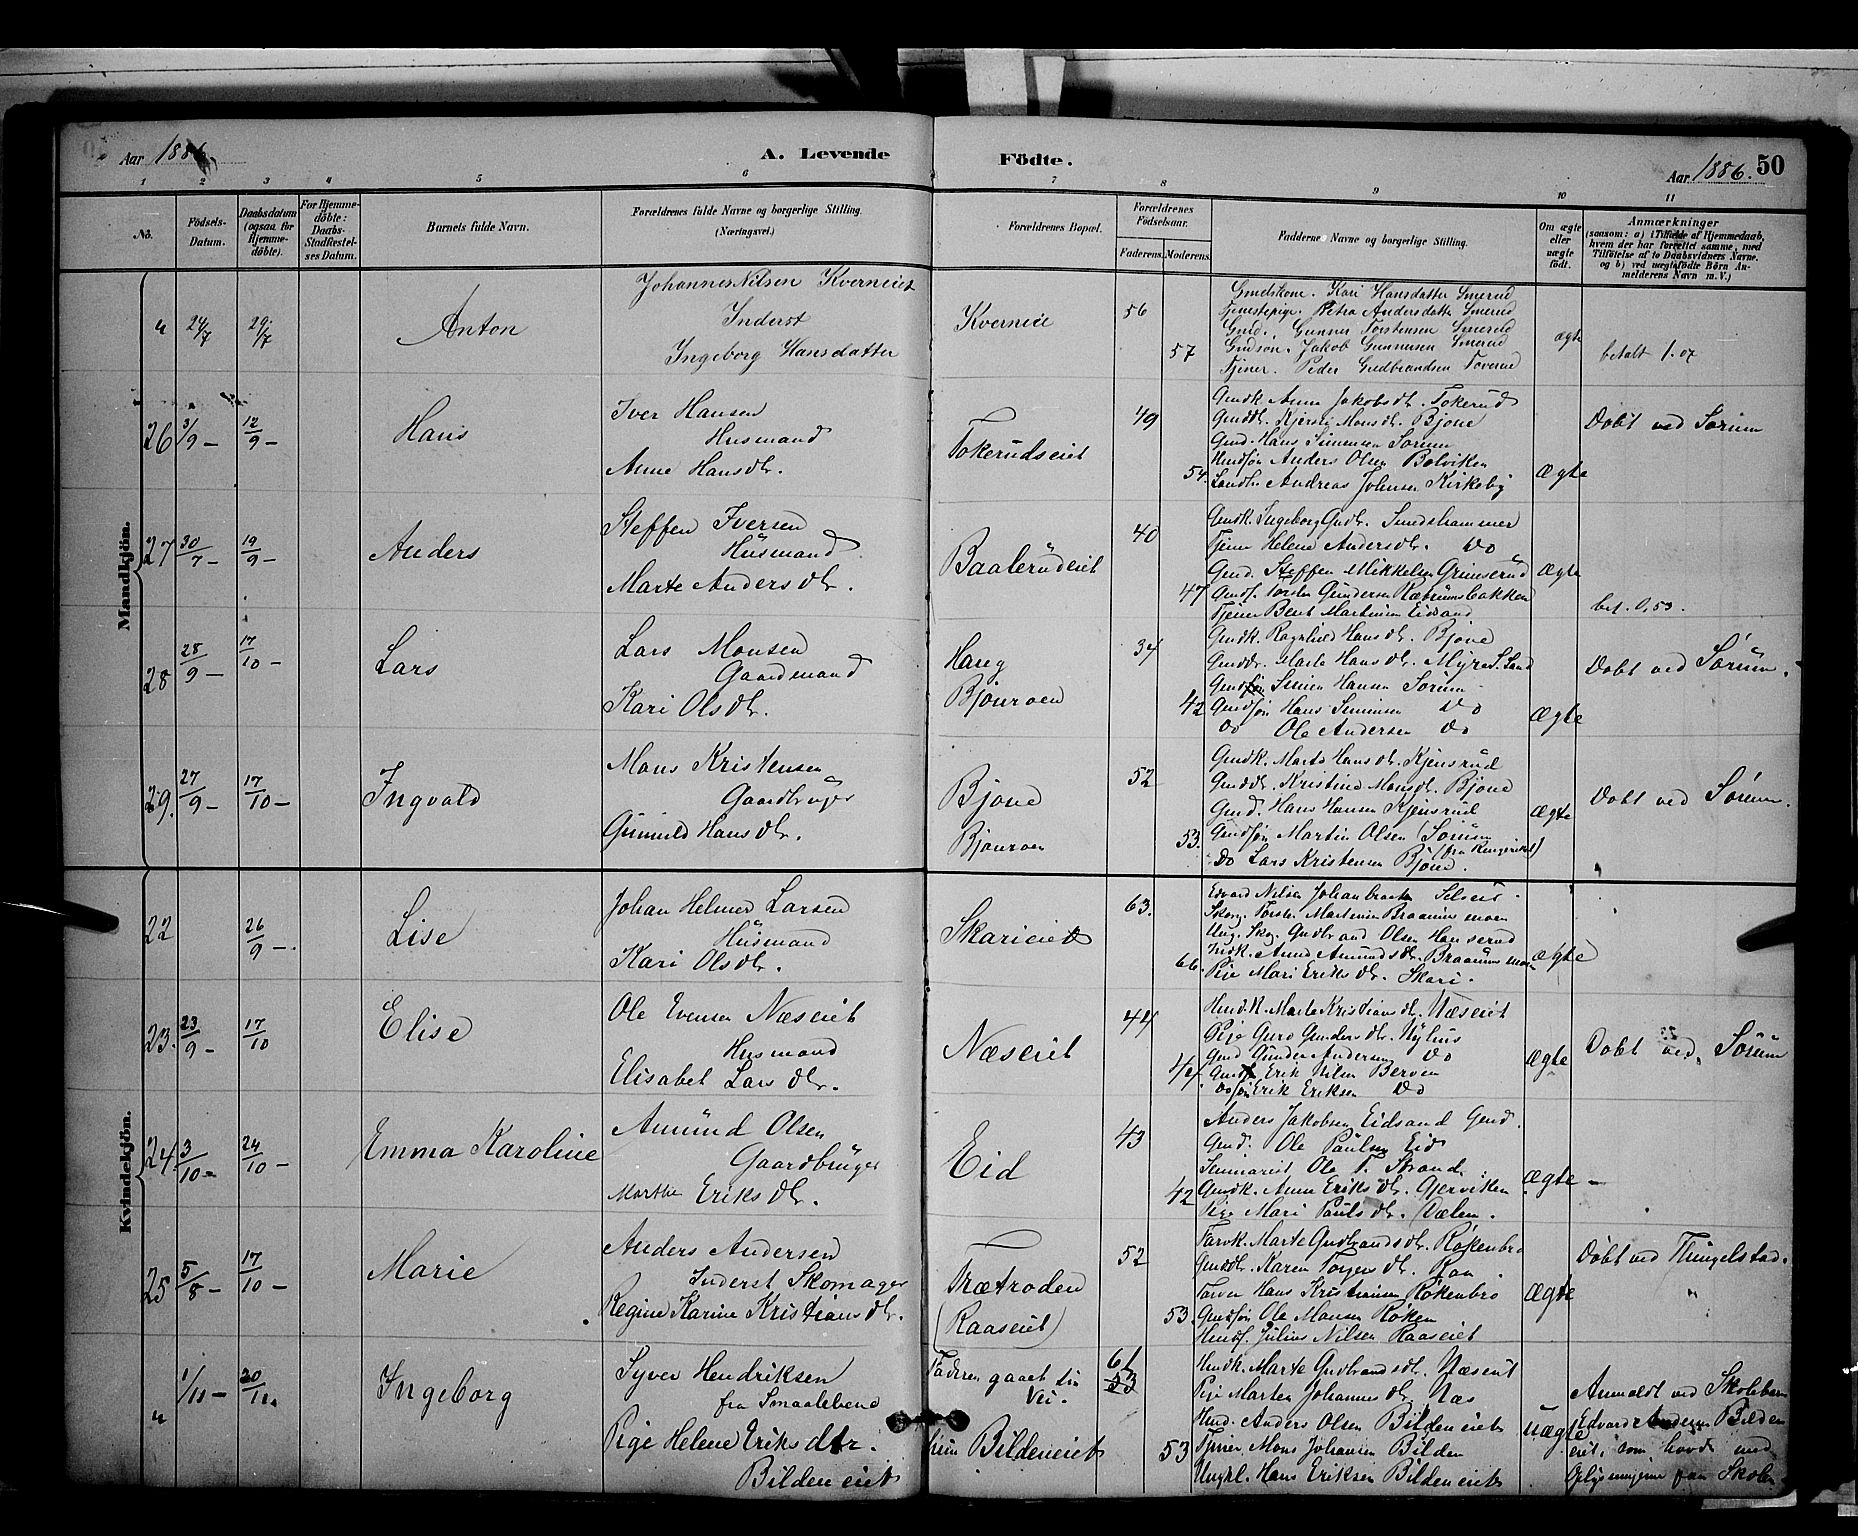 Aar 1886.
A. Levende
Födte.
Aar 1886. 50
1 2 3 4 5 6 7 8 9 10 11
No.
Födsels-Datum.
Daabsdatum (ogsaa for Hjemmedöbte).
For Hjemmedöbte: Daabs-Stadfæstelses Datum.
Barnets fulde Navn.
Forældrenes fulde Navne og borgerlige Stilling.
(Næringsvei.)
Forældrenes Bopæl.
Forældrenes Födselsaar.
Faderens. Moderens.
Faddernes Navne og borgerlige Stilling.
Om ægte eller uægte födt.
Anmærkninger
(saasom: a) i Tilfælde af Hjemmedaab, hvem der har forrettet samme, med Tilföielse af to Daabsvidners Navne. og b) ved uægtefödte Börn Anmelderens Navn m.V.)
Mandkjön.
" 24/7 29/7 Anton
Johannes Nilsen Kverneiet
Inderst
Ingeborg Hansdatter
Kverneie
56
57
Gmdskone. Kari Hansdatter Smerud
Tjenstepige. Petra Andersdatter Smerud
Gmd. Gunner Torstensen Smerud
Gmdsøn. Jakob Gunnersen Smerud
Tjener. Peder Gudbrandsen
ægte
betalt 1.07
26 3/9 – 12/9 – Hans
Iver Hansen
Husmand
Anne Hansdtr.
Tokerudseiet
49
54.
Gmdk. Anne Jakobsdt. Tokerud
Gmddt. Kjersti Monsdt. Bjone
Gmd. Hans Simensen Sørum
Hmdsøn Anders Olsen Bolviken
Landh. Andreas Johnsen Kirkeby
Ægte
Døbt ved Sørum
27 30/7 – 19/9 – Anders
Steffen Iversen
Husmand
Marte Andersdtr.
Baalerudeiet
40
47
Gmdk. Ingeborg Gudt. Smedshammer
Tjener Helene Andersdtr. Do
Gmd. Steffen Mikkelsen Grimsrud
Gmdsf. Torsten Gundersen
Tjener Bent Martinsen Eidsand
Ægte
bet. 0,53.
28 28/9 – 17/10 – Lars
Lars Monsen
Gaardmand
Kari Olsdtr.
Haug
Bjonroen
34
42
Gmdk. Ragnhild Hansdt. Bjone
Gmddt. Marte Hansdt. Myre S. Land
Gmd Simen Hansen Sørum
Gmdsøn Hans Simensen Do
Do Ole Andersen Do
Ægte
Døbt ved Sørum.
29. 27/9 – 17/10 – Ingvald
Mons Kristensen
Gaardbruger
Gunnild Hansdtr.
Bjone
Bjonroen
52
53.
Gmdk. Marte Hansdt. Kjensrud
Gmddt. Kristine Monsdt. Bjone
Gmd. Hans Hansen Kjensrud
Gmdsøn Martin Olsen Sørum
(fra Ringeriket)
Do Lars Kristensen Bjone.
Ægte
Døbt ved Sørum.
Kvindekjön.
22 26/9 –. Lise
Johan Helmer Larsen
Husmand
Kari Olsdtr.
Skarieiet
63.
66.
Edvard Nilsen Johan
Martinsen
Ung. Gudbrand Olsen
Anne Amundsdtr.
Pige Mari Eriksdtr. Skari.
Ægte
23. 23/9 – 17/10 Elise
Ole Evensen Næseiet
Husmand
Elisabet Larsdtr.
Næseiet
44
Hmdk. Marte Kristiansdt. Næseiet
Pige Guro Gundersdt. Nyhus
Gmd Gunder Andersen Do
Gmd Erik Nilsen Berven
Do søn Erik Eriksen Do
Ægte
Døbt ved Sørum
24. 3/10 – 24/10 – Emma Karoline
Amund Olsen
Gaardbruger
Marthe Eriksdtr.
Eid
43
42
Anders Jakobsen Eidsand Gmd.
Gmd. Ole Paulsen Eid
Seminarist Ole T. Strand.
Gmdk. Anne Eriksdtr. Gjerviken
Pige Mari Paulsdtr. Vælen.
Ægte –
25 5/8 – 17/10 – Marie
Anders Andersen
Inderst Skomager
Regine Karine Kristiansdtr.
Trætroden
(Raaseiet)
52
53.
Farvk. Marte Gudbrandsdt. Røkenbro
Gmddt. Karen Torgersdt. Raa
Farver Hans Kristiansen Røkenbro
Gmdsøn Ole Monsen Røken
Hmdsf. Julius Nilsen Raaseiet
Ægte
Døbt ved Thingelstad.
"
" 1/11 – 20/11. Ingeborg
Syver Hendriksen
fra Smaalehnene
Pige Helene Eriksdtr.
Bildeneiet
Faderen gaaet sin
Vei.
hun Bildeneiet
61
53
53
Hmdk. Marte Gudbrandsdt. Næseiet
Pige Marten Johannesdt. Næs
Hmd. Anders Olsen Bildeneiet
Tjener. Mons Johansen Bilden
Ungkl. Hans Eriksen Bildeneiet
uægte
Anmeldt ved Skolebarn
Edvard Andersen Bilden
eiet, som havde med
Oplysningerne fra Skolen